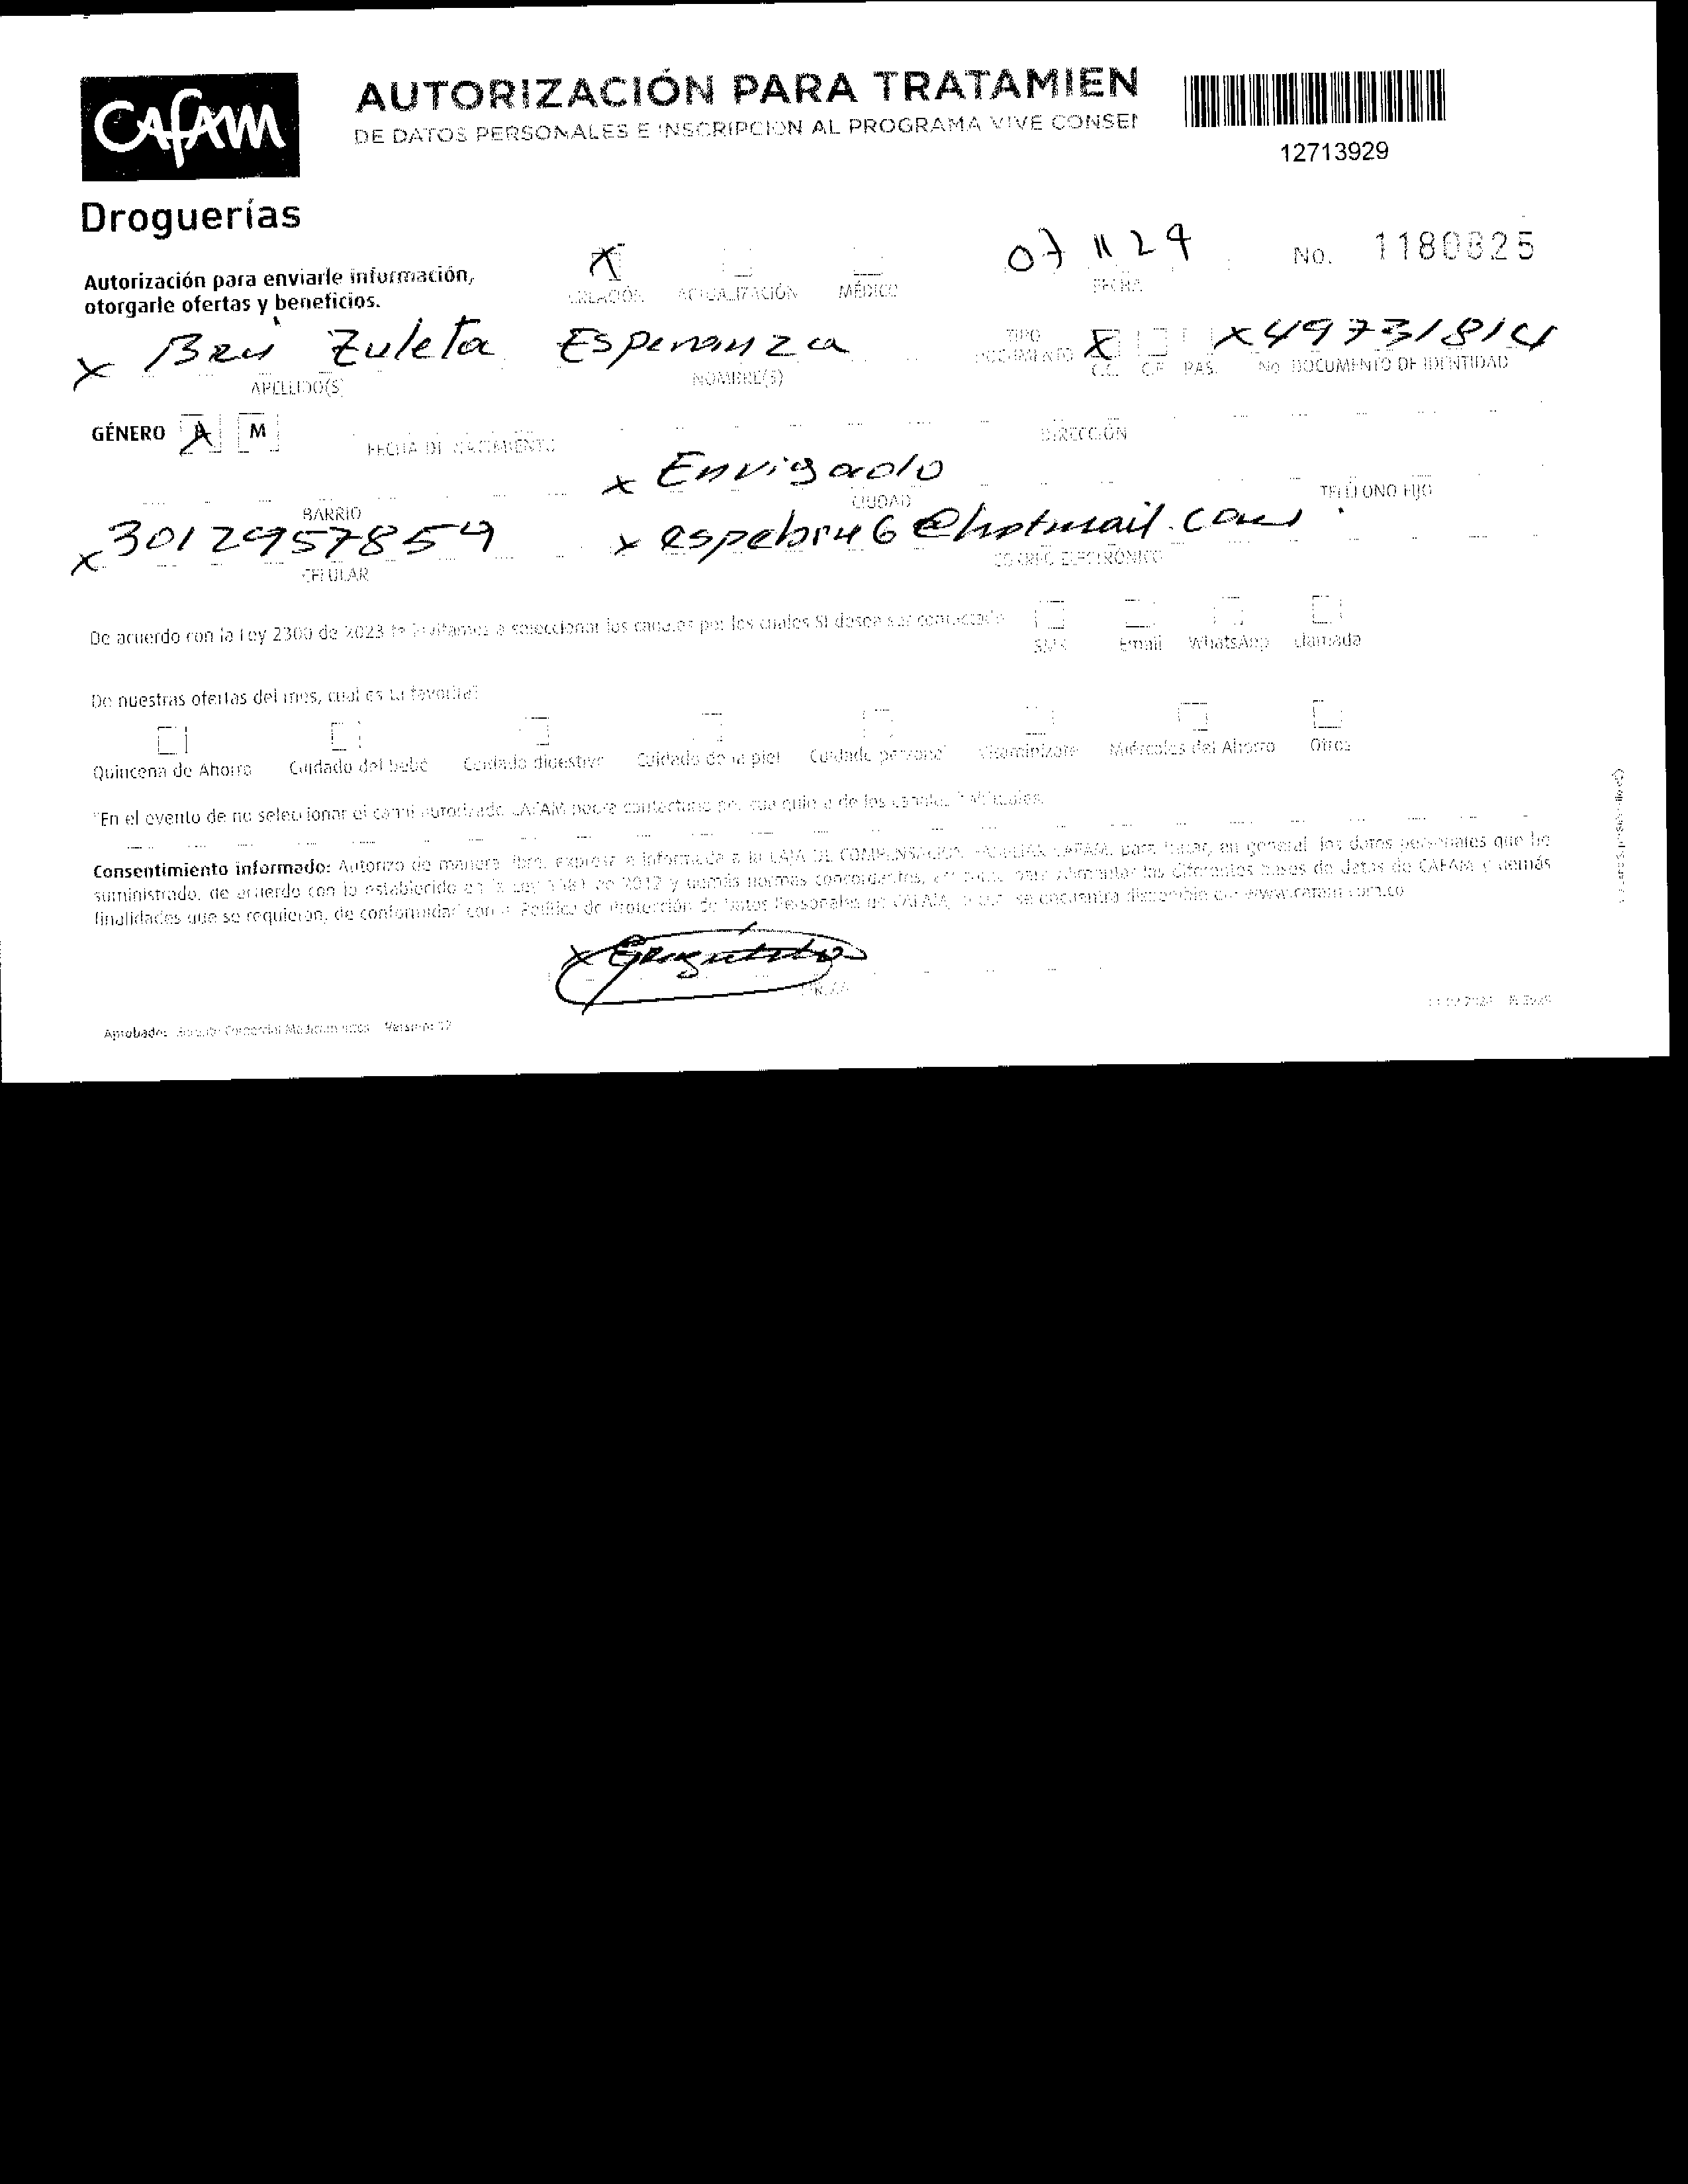 CAFAM
AUTORIZACIÓN PARA TRATAMIEN
DE DATOS PERSONALES E INSCRIPCIÓN AL PROGRAMA VIVE CONSEI
12713929
Droguerías
Autorización para enviarle información,
otorgarle ofertas y beneficios.
X
CREACIÓN ACTUALIZACIÓN MÉDICO
07 11 24
FECHA
No. 1180825
x Bru Zuleta Esperanza
APELLIDO(S) NOMBRE(S)
TIPO DOCUMENTO X C.C. C.E. PAS.
x 49731814
No. DOCUMENTO DE IDENTIDAD
GÉNERO M
FECHA DE NACIMIENTO DIRECCIÓN
x Envigado
BARRIO CIUDAD TELÉFONO FIJO
x 3012957859 x espebru6@hotmail.com
CELULAR CORREO ELECTRÓNICO
De acuerdo con la Ley 2300 de 2023 te invitamos a seleccionar los canales por los cuales SI desea ser contactado
SMS Email WhatsApp Llamada
De nuestras ofertas del mes, cual es tu favorita?
Quincena de Ahorro Cuidado del bebé Cuidado digestivo Cuidado de la piel Cuidado personal Vitaminízate Miércoles del Ahorro Otros
*En el evento de no seleccionar el canal autorizado CAFAM podrá contactarlo por cualquiera de los canales
Consentimiento informado: Autorizo de manera libre, expresa e informada a la CAJA DE COMPENSACIÓN FAMILIAR CAFAM, para tratar, en general, los datos personales que he
suministrado, de acuerdo con lo establecido en la Ley 1581 de 2012 y demás normas concordantes, para alimentar las diferentes bases de datos de CAFAM y demás
finalidades que se requieran, de conformidad con la Política de Protección de Datos Personales de CAFAM, se encuentra disponible en www.cafam.com.co
x
FIRMA
Aprobado: Comercial Medicamentos Versión: 12